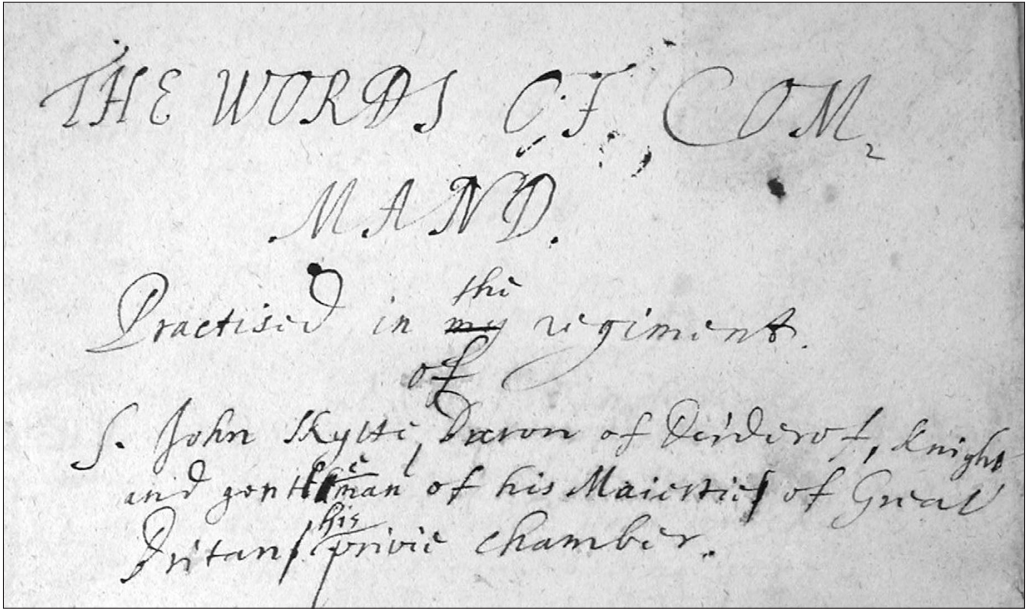 THE WORDS OF COM-
MAND.
the
Practised in my regiment.
of
S. John Skytte, Baron of Deiderof, Knight
and gentleman of his Maiesties of Great
his
Britans privie chamber.